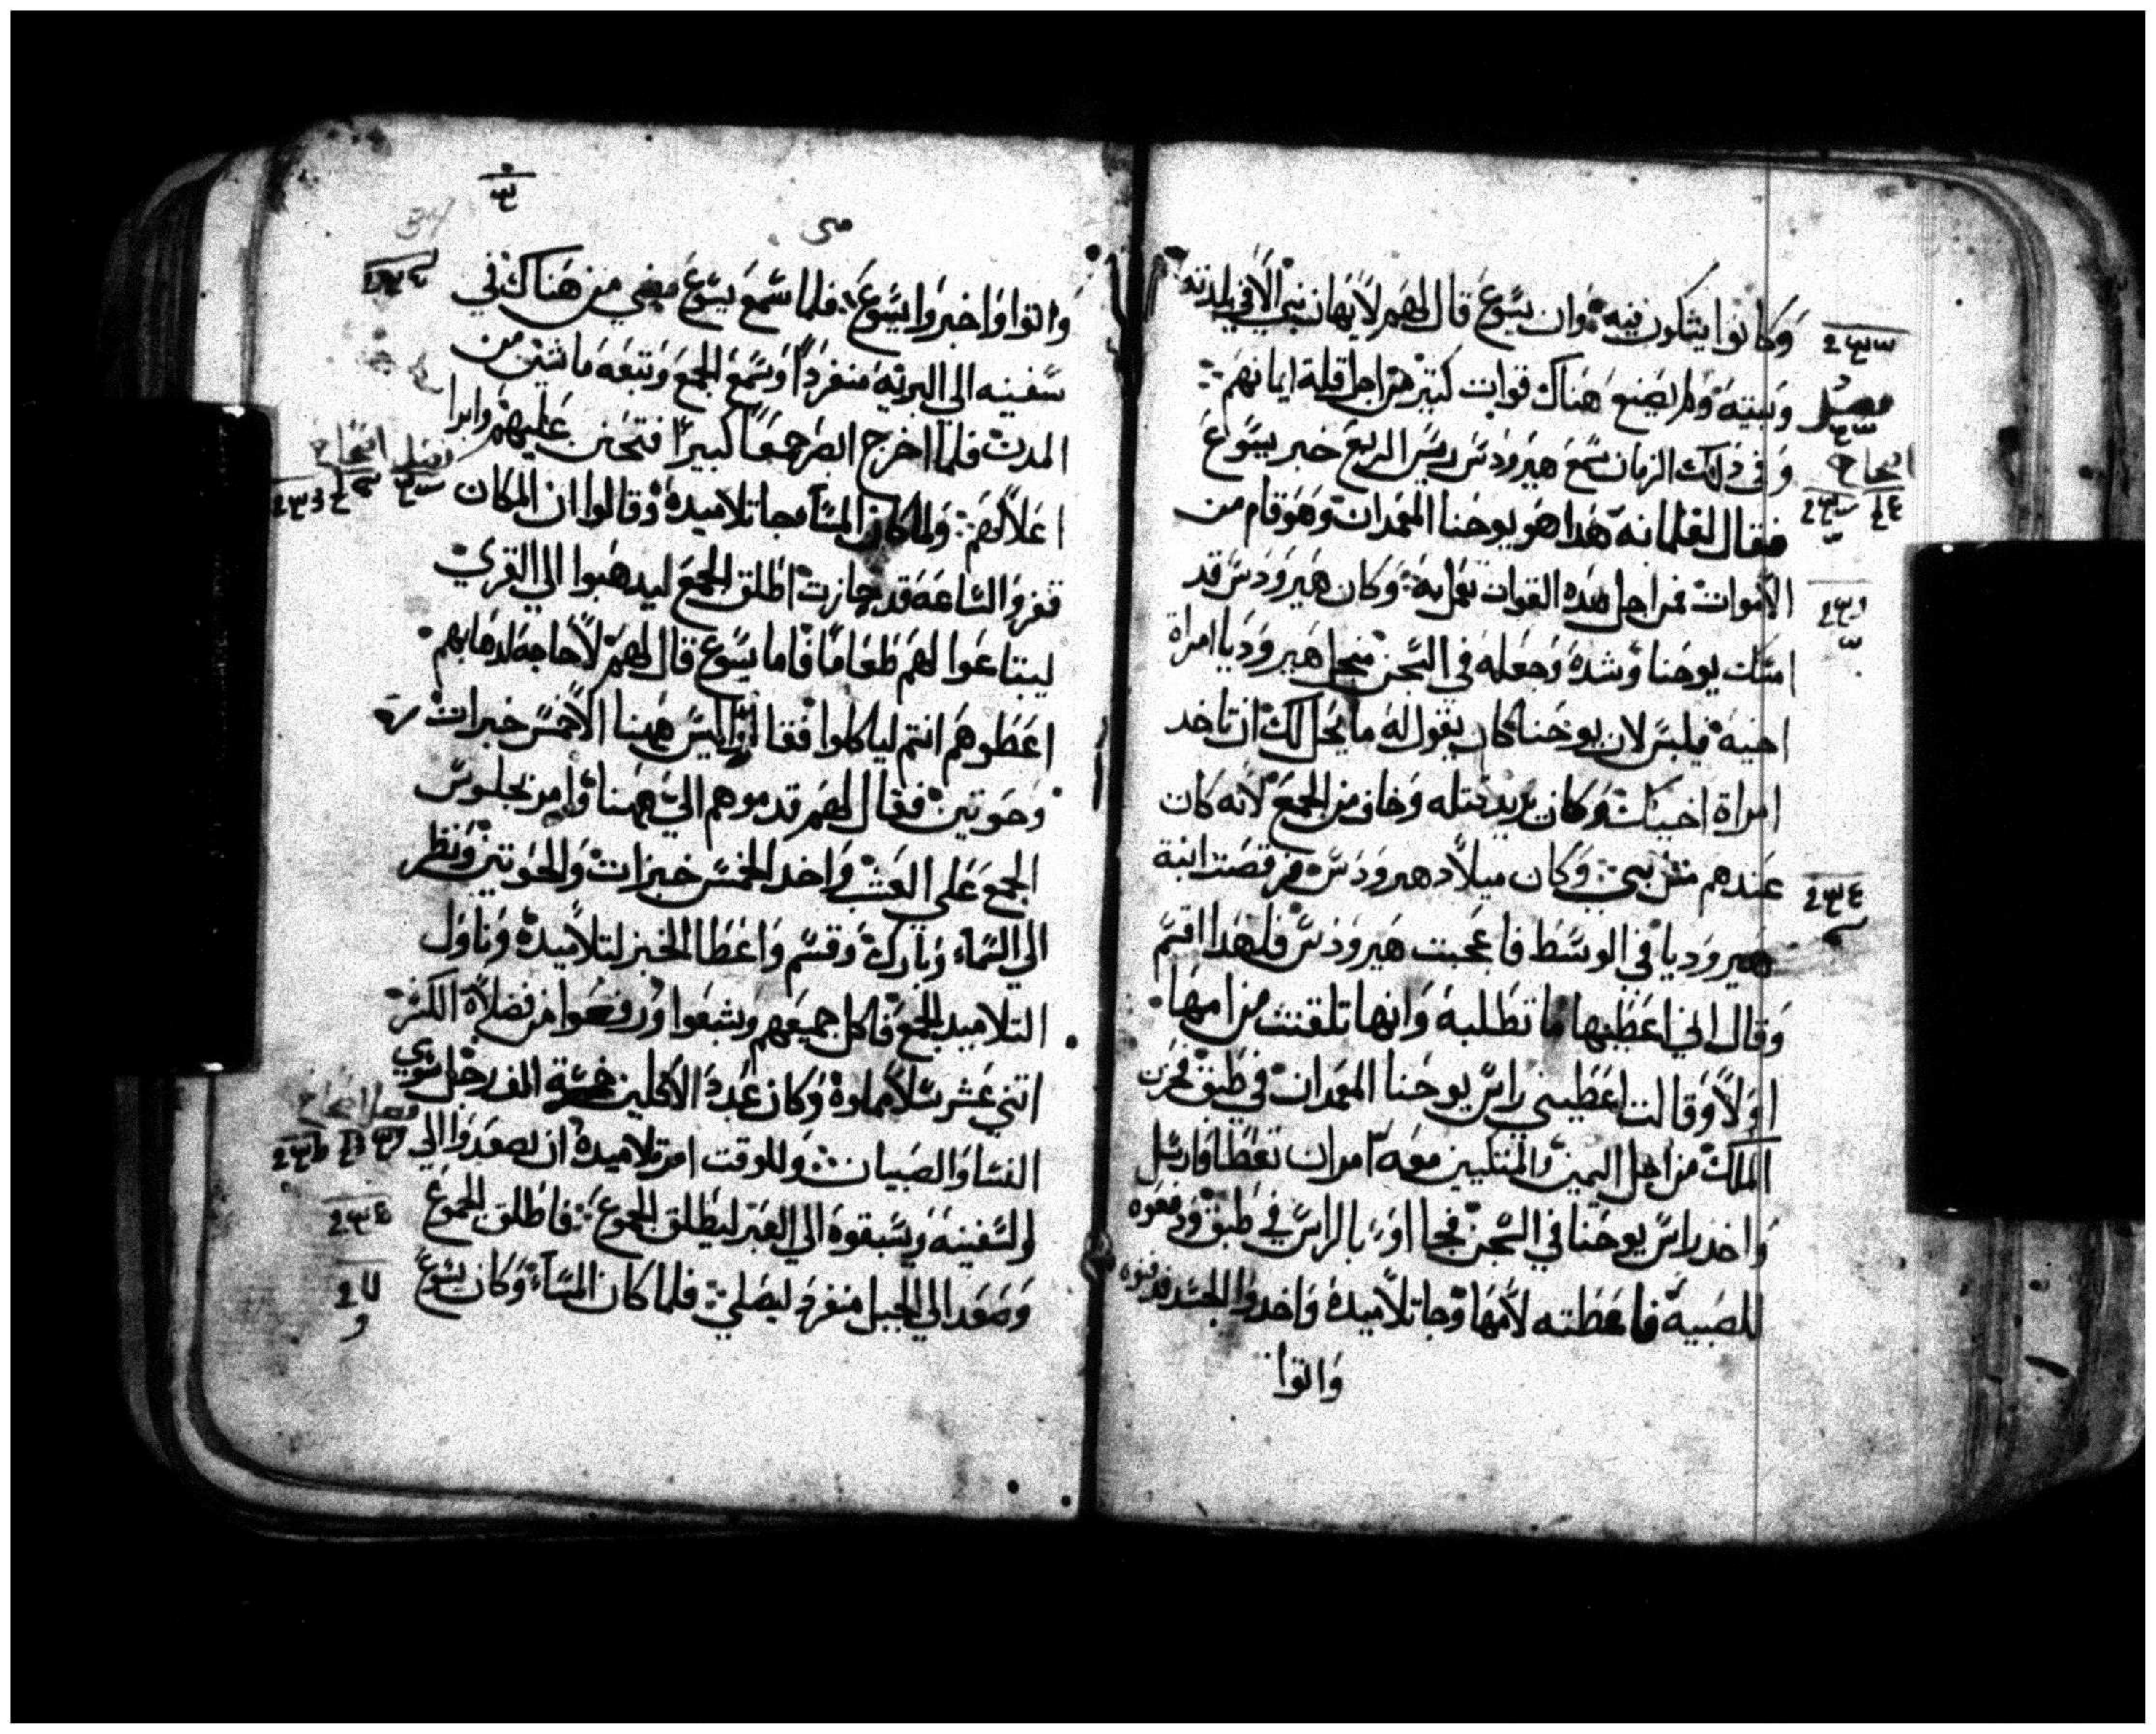 وكانوا يشكون فيه وان يسوع قال لهم لا يهان نبي الا في بلدته
وبيته ولم يصنع هناك قوات كتير من اجل قلة ايمانهم
وفي دلك الزمان سمع هيرودس ريس الربع خبر يسوع
فقال لغلمانه هدا هو يوحنا المعمدان وهو قام من
الاموات فمن اجل هده القوات تعمل به وكان هيرودس قد
امسك يوحنا وشده وجعله في السجن منجل هيروديا امراة
اخيه فيلبس لان يوحنا كان يقول له ما يحل لك ان تاخد
امراة اخيك وكان يريد قتله وخاف من الجمع لانه كان
عندهم متل نبي وكان ميلاد هيرودس فرقصت ابنة
هيروديا في الوسط فاعجبت هيرودس فلهدا اقسم
وقال اني اعطيها ما تطلبه وانها تلقنت من امها
اولا وقالت اعطيني راس يوحنا المعمدان في طبق فحزن
الملك من اجل اليمين والمتكيين معه امر ان تعطا فارسل
واخد راس يوحنا في السجن فجاوا بالراس في طبق ودفعوه
للصبية فاعطته لامها وجا تلاميده واخدوا الجسد فدفنوه
واتوا
متى
واتوا واخبروا يسوع فلما سمع يسوع مضي من هناك في
سفينه الي البريه منفردا وسمع الجمع وتبعه ماشين من
المدن فلما اخرج ابصر جمعا كبيرا فتحنن عليهم وابرا
اعلالهم ولما كان المسا جا تلاميده وقالوا ان المكان
قفر والساعه قد جازت اطلق الجمع ليدهبوا الي القري
ليبتاعوا لهم طعاما فاما يسوع قال لهم لا حاجه لدهابهم
اعطوهم انتم لياكلوا فقالوا ليس ههنا الا خمس خبزات
وحوتين فقال لهم قدموهم الي ههنا وامر بجلوس
الجمع علي العشب واخد الخمس خبزات والحوتين ونظر
الي السماء وبارك وقسم واعطا الخبز لتلاميده وناول
التلاميد الجمع فاكل جميعهم وشبعوا ورفعوا من فضلاة الكسر
اتني عشر سلا مملوة وكان عدة الاكلين خمسة الف رجل سوي
النسا والصبيان وللوقت امر تلاميده ان يصعدوا الي
السفينه ويسبقوه الي العبر ليطلق الجموع فاطلق الجموع
وصعد الي الجبل منفرد ليصلي فلما كان المساء وكان يسوع